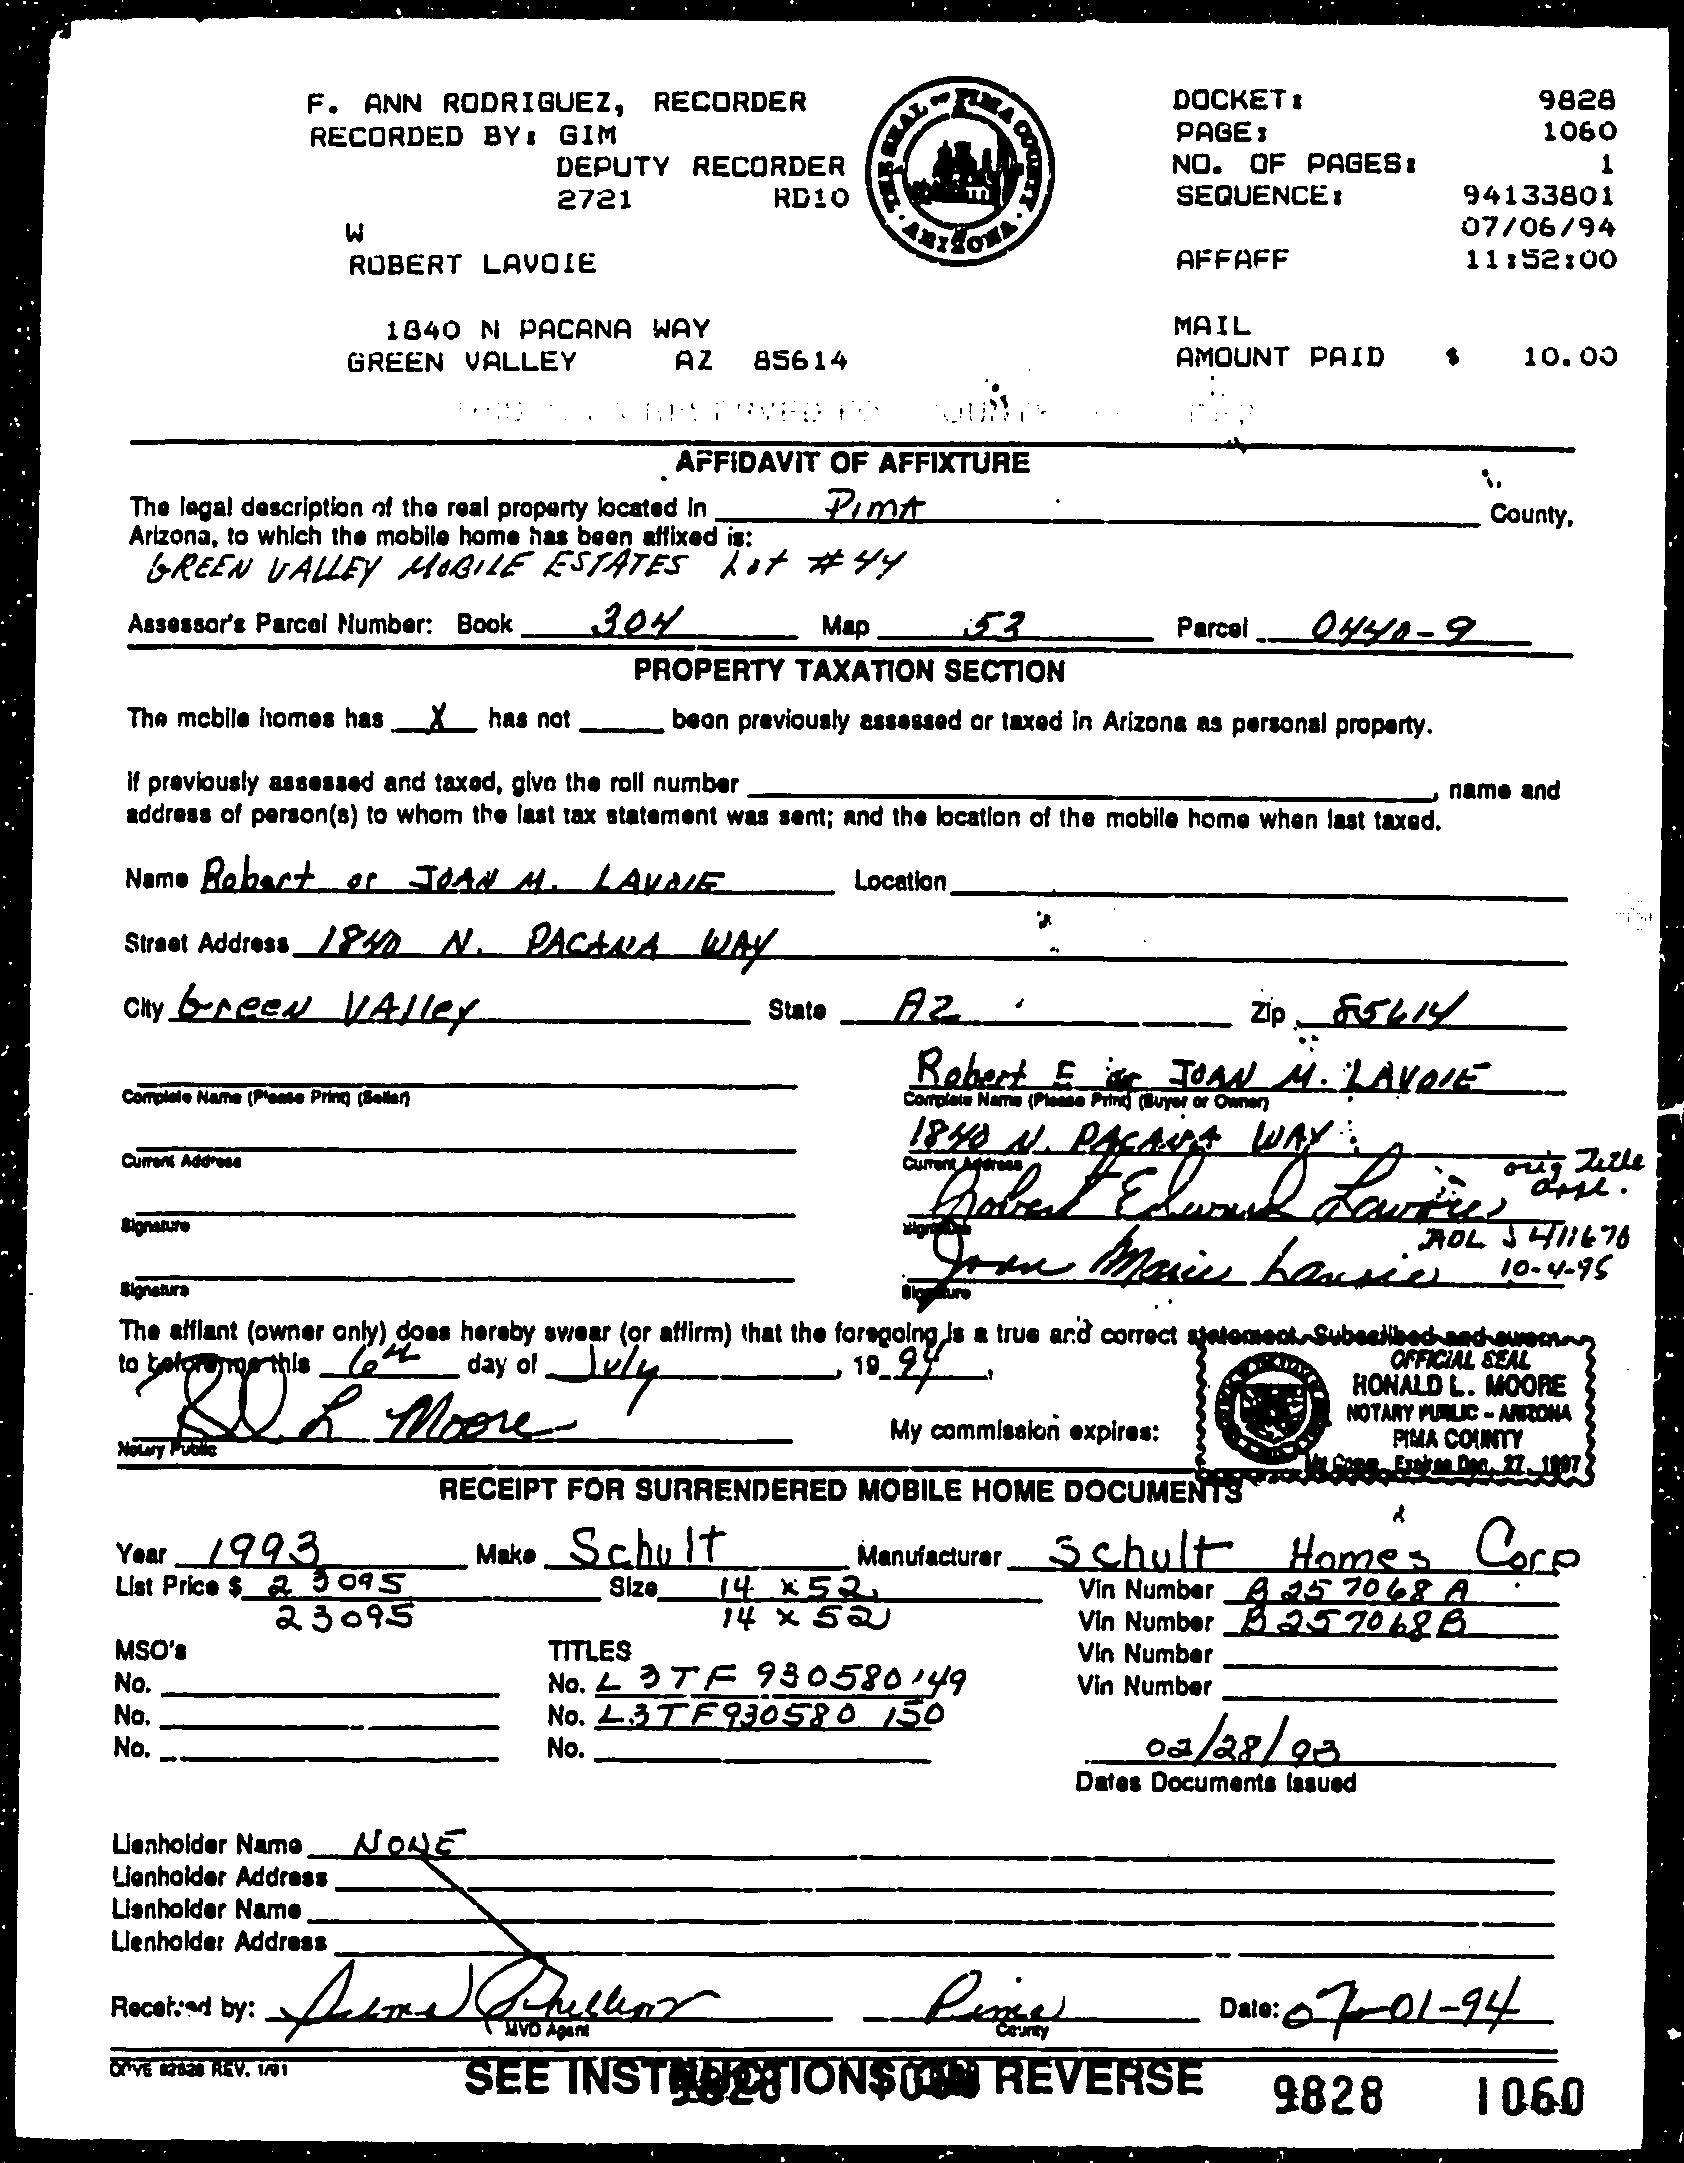 F. ANN RODRIGUEZ, RECORDER
RECORDED BY: GIM
DEPUTY RECORDER
2721 RD10
W
ROBERT LAVOIE
1840 N PACANA WAY
GREEN VALLEY AZ 85614
THE SEAL OF PIMA COUNTY · ARIZONA ·
DOCKET: 9828
PAGE: 1060
NO. OF PAGES: 1
SEQUENCE: 94133801
07/06/94
AFFAFF 11:52:00
MAIL
AMOUNT PAID $ 10.00
AFFIDAVIT OF AFFIXTURE
The legal description of the real property located in PimA County,
Arizona, to which the mobile home has been affixed is:
GREEN VALLEY MOBILE ESTATES Lot # 44
Assessor's Parcel Number: Book 304 Map 52 Parcel 0440-9
PROPERTY TAXATION SECTION
The mobile homes has X has not been previously assessed or taxed in Arizona as personal property.
If previously assessed and taxed, give the roll number , name and
address of person(s) to whom the last tax statement was sent; and the location of the mobile home when last taxed.
Name Robert or JOAN M. LAVOIE Location
Street Address 1840 N. PACANA WAY
City Green VAlley State AZ Zip 85614
Robert E or JOAN M. LAVOIE
Complete Name (Please Print) (Seller) Complete Name (Please Print) (Buyer or Owner)
1840 N. PACANA WAY
Current Address Current Address
orig Title
Robert Edward Lavoie
Signature Signature
ADL J 411670
Joan Marie Lavoie 10-4-95
Signature Signature
The affiant (owner only) does hereby swear (or affirm) that the foregoing is a true and correct statement. Subscribed and sworn
to before me this 6th day of July, 1994,
OFFICIAL SEAL
RONALD L. MOORE
NOTARY PUBLIC - ARIZONA
PIMA COUNTY
My Comm. Expires Dec. 27, 1997
L Moore
Notary Public My commission expires:
RECEIPT FOR SURRENDERED MOBILE HOME DOCUMENTS
Year 1993 Make Schult Manufacturer Schult Homes Corp
List Price $ 23095 Size 14 x 52 Vin Number B257068A
23095 14 x 52 Vin Number B257068B
MSO's TITLES Vin Number
No. No. L3TF930580149 Vin Number
No. No. L3TF930580150
No. No. 02/28/93
Dates Documents Issued
Lienholder Name NONE
Lienholder Address
Lienholder Name
Lienholder Address
Received by: Pima Date: 07-01-94
MVD Agent County
REV. 1/91 SEE INSTRUCTIONS ON REVERSE 9828 1060